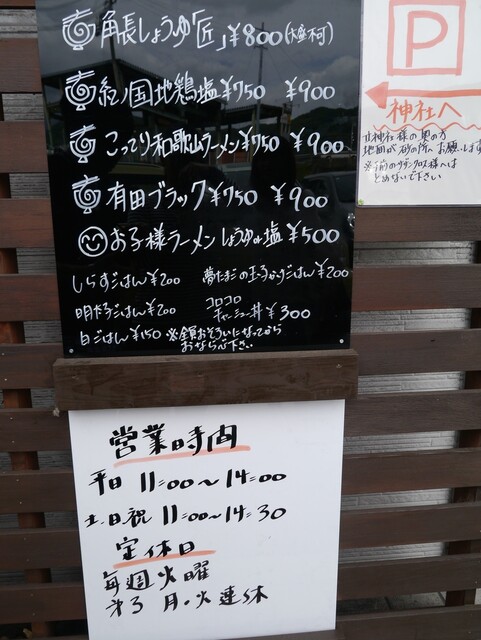 角長しょうゆ「匠」¥800(大盛不可)
紀ノ国地鶏塩¥750 ¥900
こってり和歌山ラーメン¥750 ¥900
有田ブラック¥750 ¥900
お子様ラーメン しょうゆor塩 ¥500
しらすごはん¥200 夢たまごの玉子かけごはん¥200
明太子ごはん¥200 コロコロチャーシュー丼¥300
白ごはん¥150 ※全員おそろいになってから
おならび下さい
P
神社へ
神社様の奥の方
地面が砂の所へお願いします
とめないで下さい
営業時間
平日 11:00〜14:00
土・日・祝 11:00〜14:30
定休日
毎週火曜
第3 月・火連休